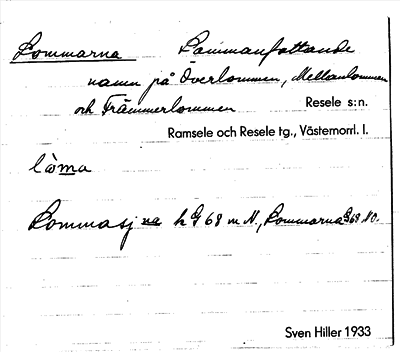 Lommarna Sammanfattande
namn på Överlommen, Mellanlommen
och Främmerlommen Resele s:n.
Ramsele och Resele tg., Västernorrl. l.
lòma
Lommasjna h G 68 m N., Lommarna G 68 NO.
Sven Hiller 1933